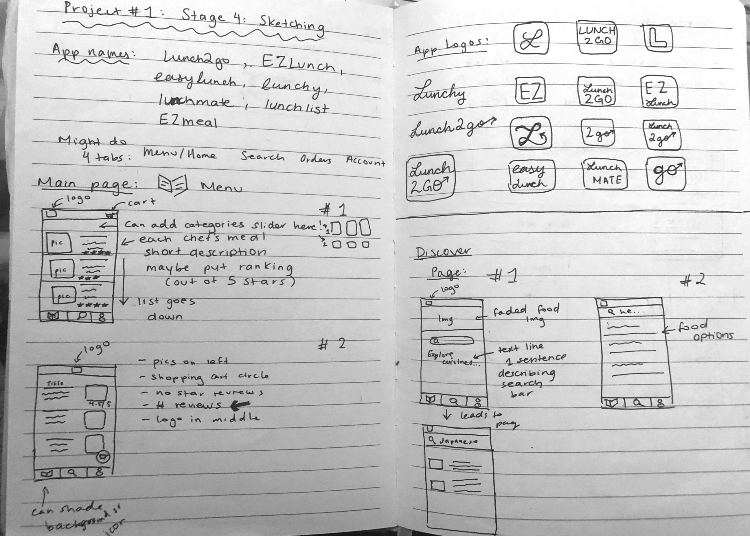 Project #1: Stage 4: Sketching
App names: Lunch2go, EZLunch,
easylunch, Lunchy,
lunchmate, lunchlist
EZmeal
Might do
4 tabs: Menu/Home Search Orders Account
Main page: Menu
logo
cart
#1
can add categories slider here!
pic
each chef's meal
short description
pic
maybe put ranking
(out of 5 stars)
pic
list goes
down
#2
logo
Title
- pics on left
- shopping cart circle
- no star reviews
- # reviews
- logo in middle
4.5/5
can shade
background of
icon
App Logos:
L
LUNCH
2GO
L
Lunchy
EZ
Lunch
2GO
EZ
Lunch
Lunch2go
L
2go
Lunch
2go
Lunch
2GO
easy
Lunch
Lunch
MATE
go
Discover
Page: #1
#2
logo
Img
faded food
img
Explore
cuisines...
text line
1 sentence
describing
search
bar
leads to
pag
Japanese
He...
food
options